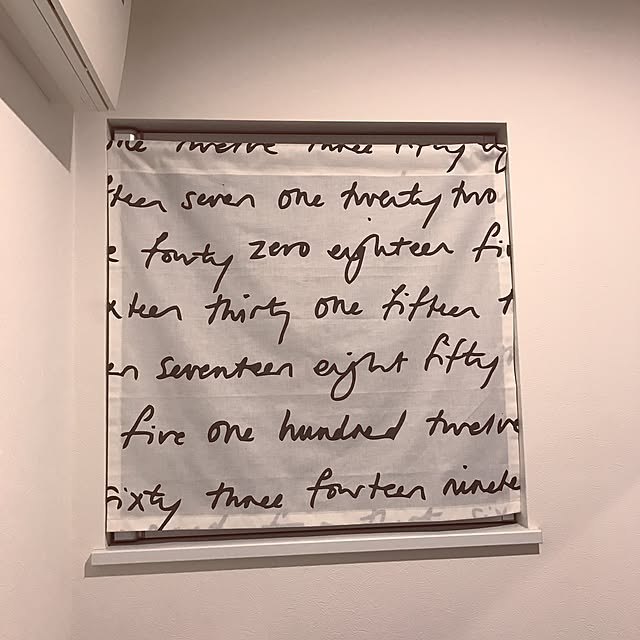 one twelve three fifty
fteen seven one twenty two
e fourty zero eighteen fi
xteen thirty one fifteen t
en seventeen eight fifty
five one hundred twelve
sixty three fourteen ninete